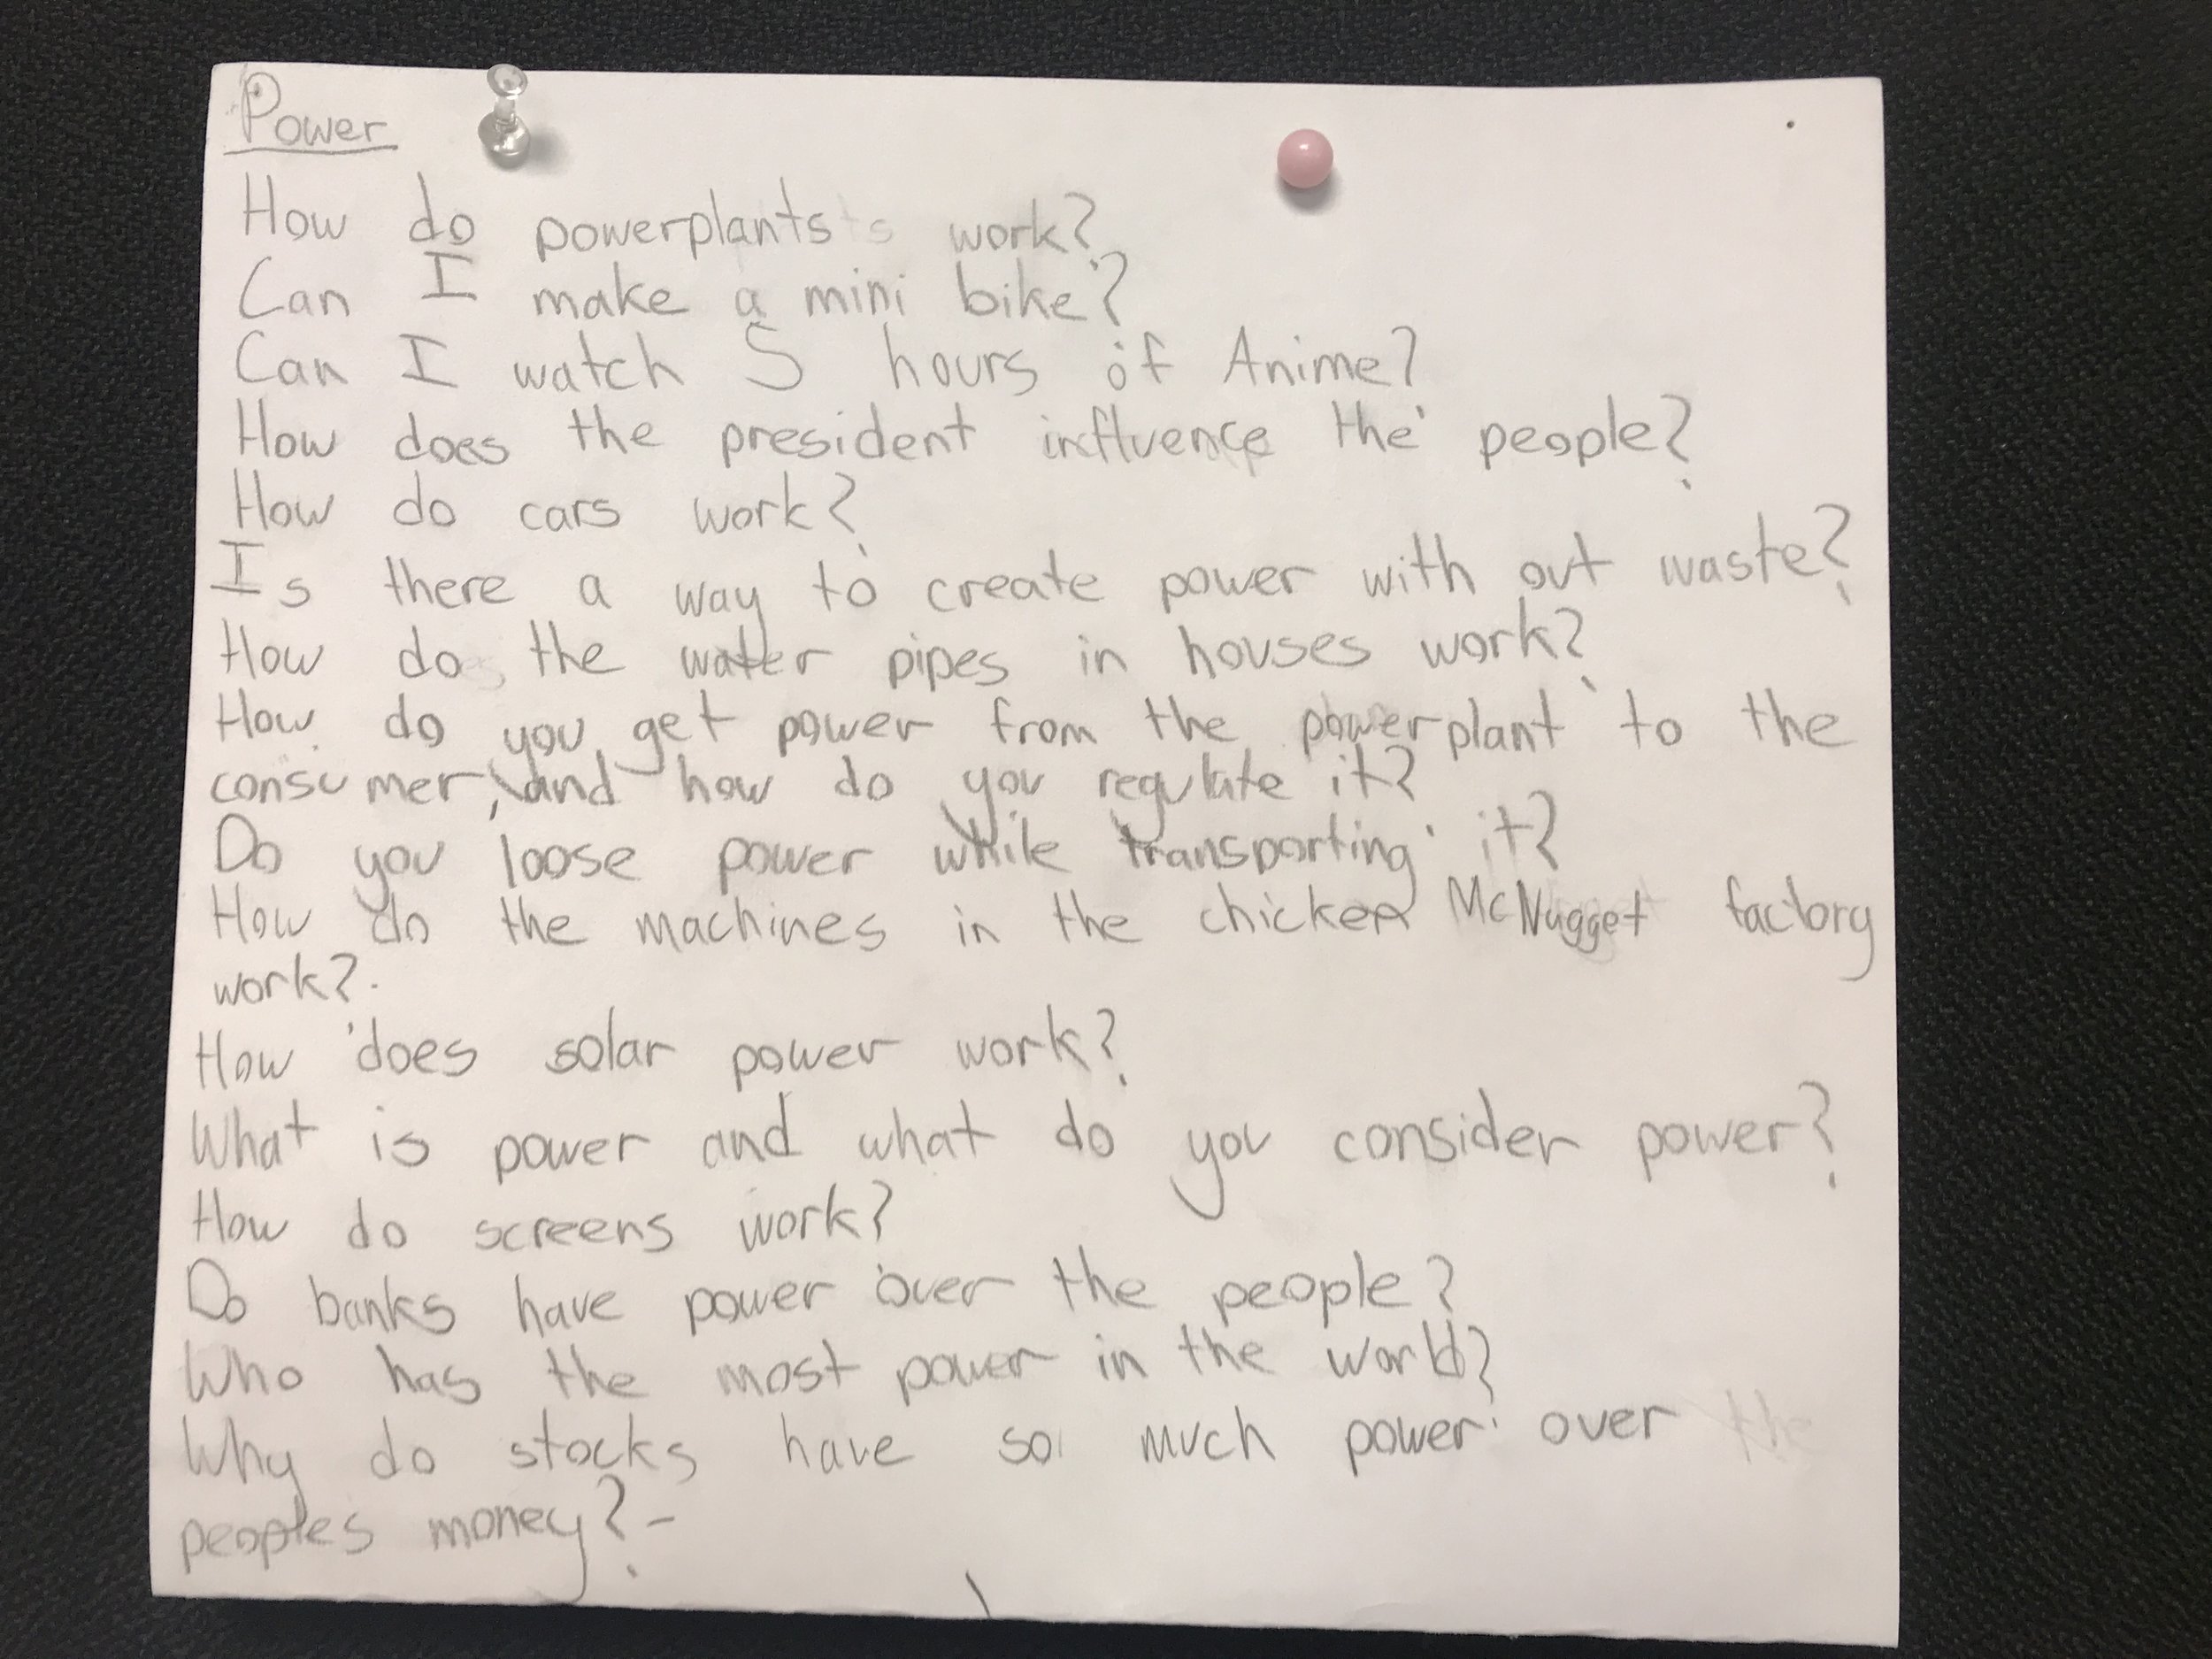 Power
How do powerplants work?
Can I make a mini bike?
Can I watch 5 hours of Anime?
How does the president influence the people?
How do cars work?
Is there a way to create power with out waste?
How do the water pipes in houses work?
How do you get power from the powerplant to the
consumer, and how do you regulate it?
Do you loose power while transporting it?
How do the machines in the chicken McNugget factory
work?
How does solar power work?
What is power and what do you consider power?
How do screens work?
Do banks have power over the people?
Who has the most power in the world?
Why do stocks have so much power over the
peoples money? -